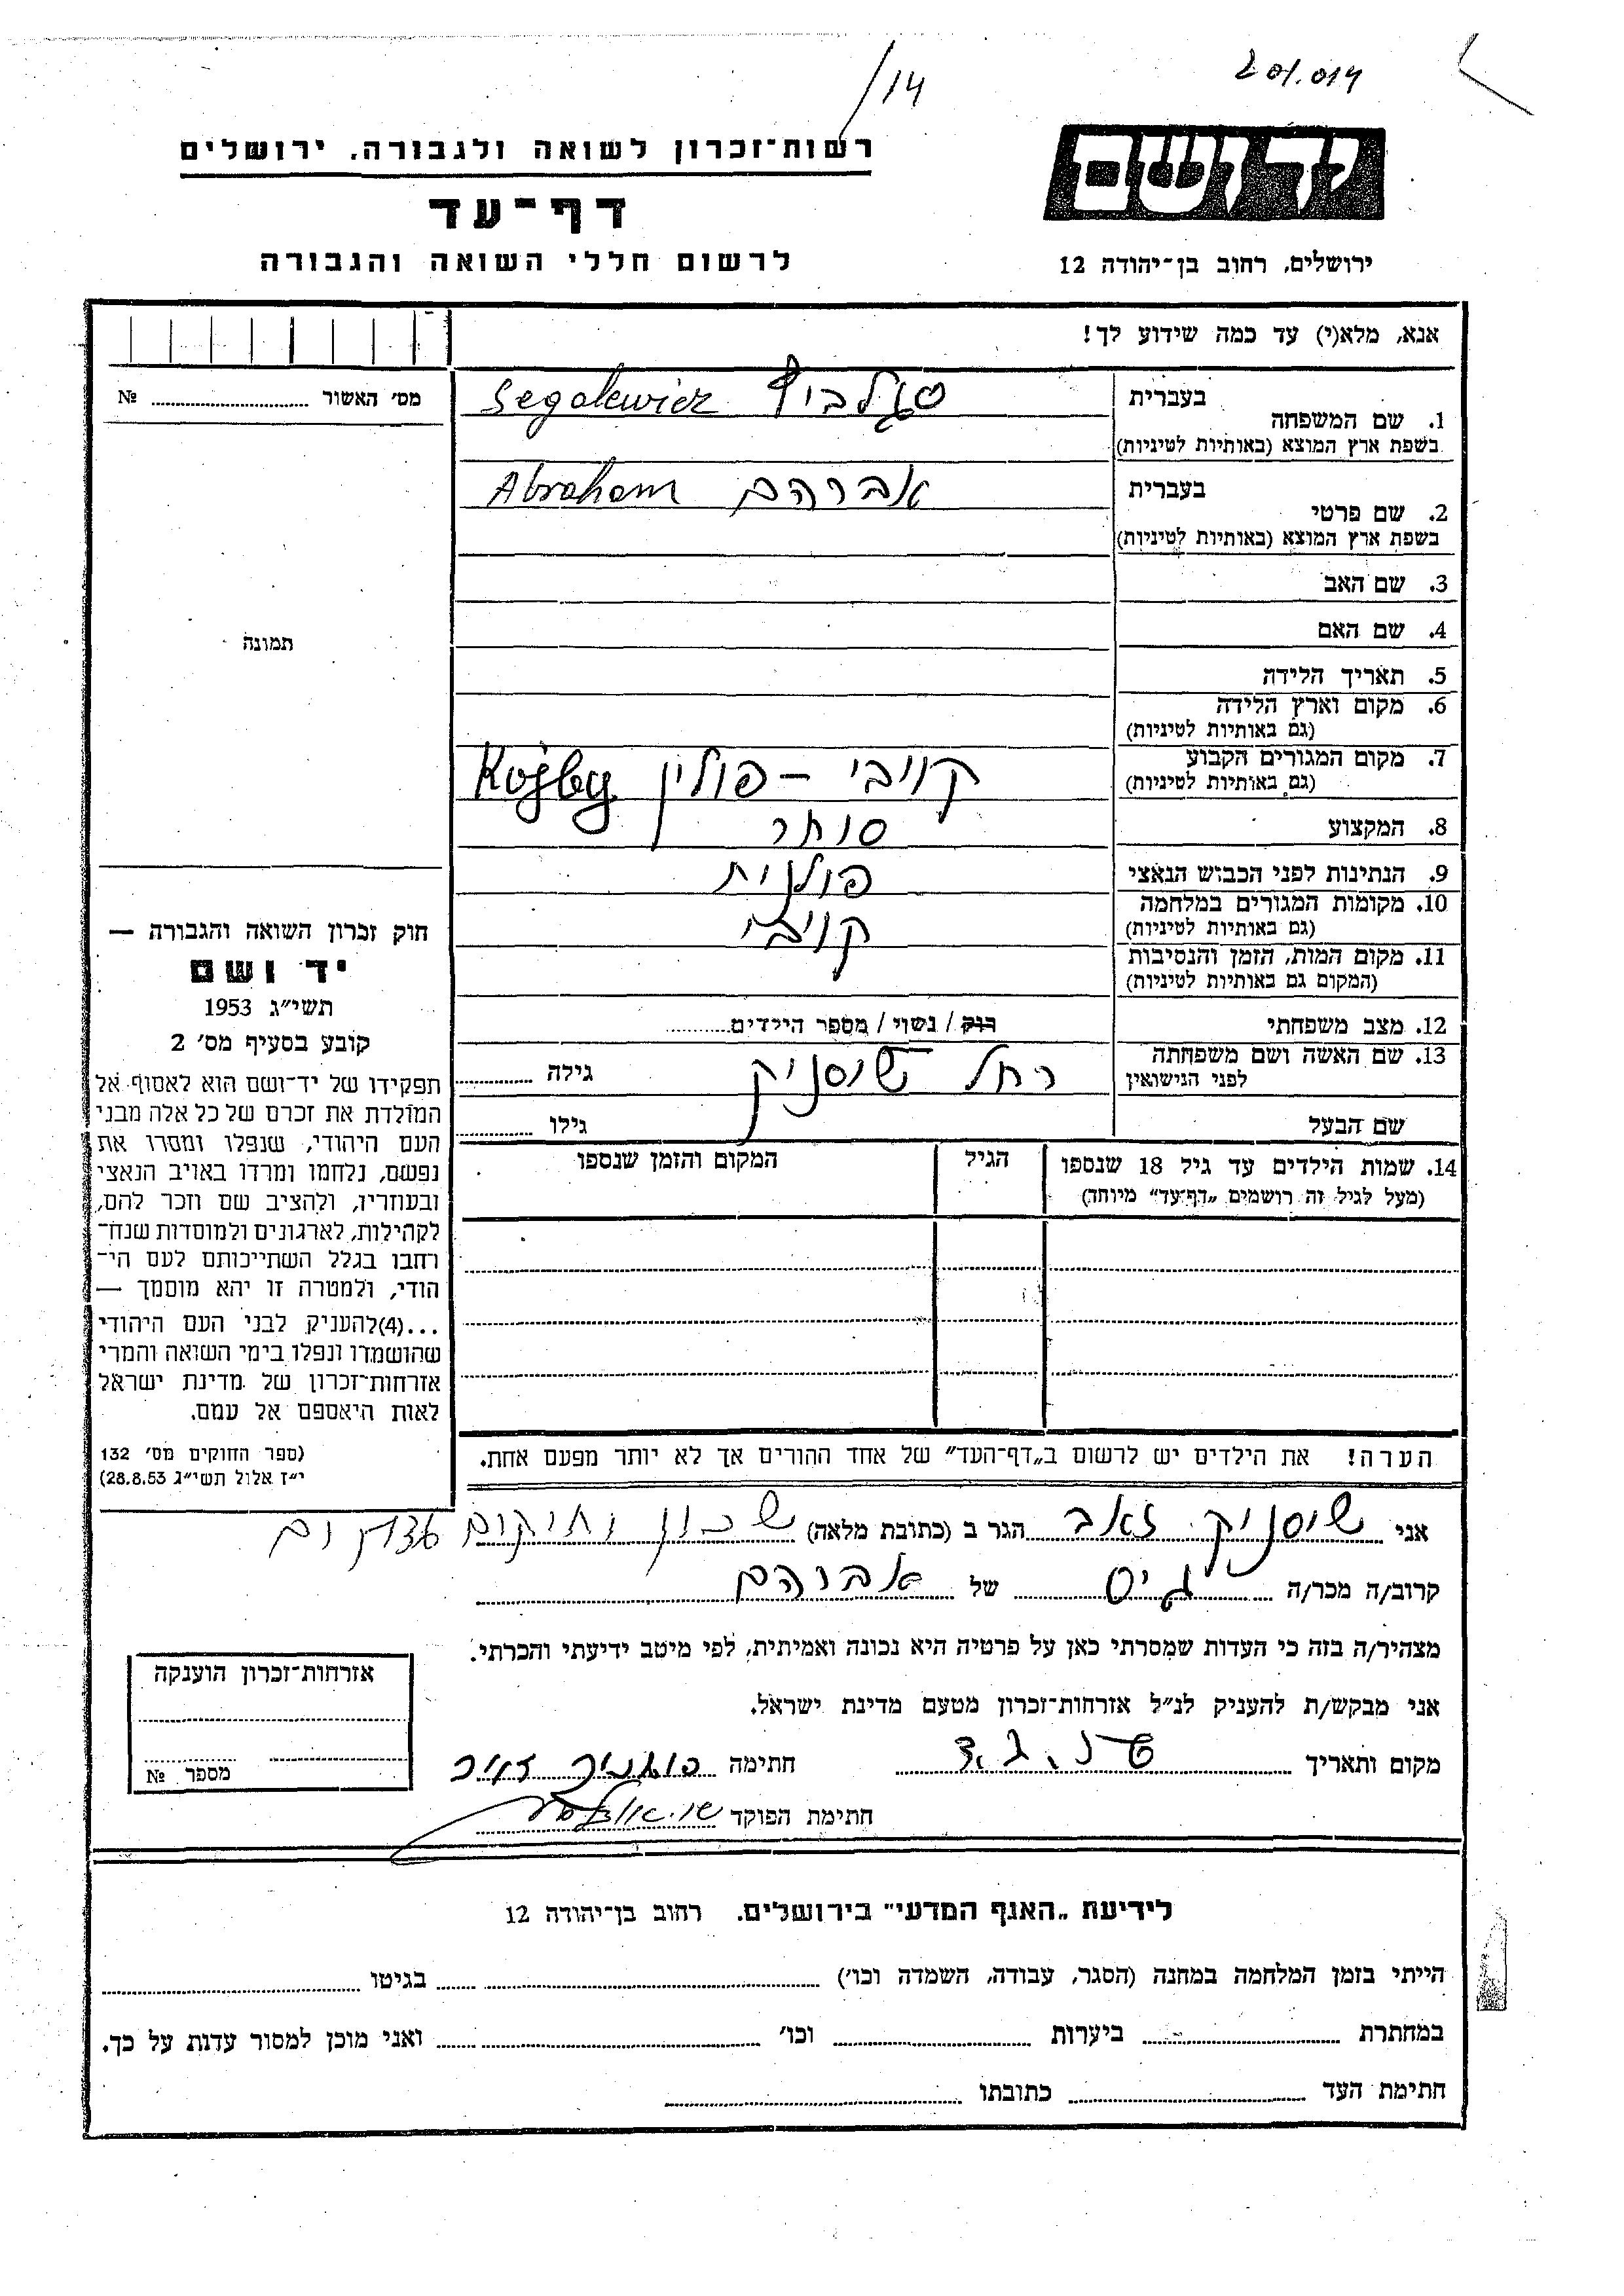 /14
201.014
ידושם
ירושלים, רחוב בן-יהודה 12
רשות-זכרון לשואה ולגבורה, ירושלים
דף-עד
לרשום חללי השואה והגבורה
אנא, מלא(י) עד כמה שידוע לך!
מס' האשור № 
1. שם המשפחה בעברית סגלביץ Segalewicz
בשפת ארץ המוצא (באותיות לטיניות)
2. שם פרטי בעברית אברהם Abraham
בשפת ארץ המוצא (באותיות לטיניות)
3. שם האב
4. שם האם
תמונה
5. תאריך הלידה
6. מקום וארץ הלידה
(גם באותיות לטיניות)
7. מקום המגורים הקבוע קויבי – פולין
(גם באותיות לטיניות)
8. המקצוע סוחר
9. הנתינות לפני הכבוש הנאצי פולנית
10. מקומות המגורים במלחמה קויבי
(גם באותיות לטיניות)
11. מקום המות, הזמן והנסיבות
(המקום גם באותיות לטיניות)
12. מצב משפחתי רוק / נשוי / מספר הילדים
13. שם האשה ושם משפחתה רחל שוסניק גילה
לפני הנישואין
שם הבעל גילו
14. שמות הילדים עד גיל 18 שנספו הגיל המקום והזמן שנספו
(מעל לגיל זה רושמים „דף-עד" מיוחד)
חוק זכרון השואה והגבורה —
יד ושם
תשי״ג 1953
קובע בסעיף מס' 2
תפקידו של יד-ושם הוא לאסוף אל
המולדת את זכרם של כל אלה מבני
העם היהודי, שנפלו ומסרו את
נפשם, נלחמו ומרדו באויב הנאצי
ובעוזריו, ולהציב שם וזכר להם,
לקהילות, לארגונים ולמוסדות שנח־
רחבו בגלל השתייכותם לעם הי־
הודי, ולמטרה זו יהא מוסמך —
...(4)להעניק לבני העם היהודי
שהושמדו ונפלו בימי השואה והמרי
אזרחות-זכרון של מדינת ישראל
לאות היאספם אל עמם.
(ספר החוקים מס' 132
י״ז אלול תשי״ג 28.8.53)
הערה! את הילדים יש לרשום ב„דף-העד" של אחד ההורים אך לא יותר מפעם אחת.
אני שוסניק זאב הגר ב (כתובת מלאה) שכון ותיקים
קרוב/ה מכר/ה גיס של אברהם
מצהיר/ה בזה כי העדות שמסרתי כאן על פרטיה היא נכונה ואמיתית, לפי מיטב ידיעתי והכרתי.
אני מבקש/ת להעניק לנ״ל אזרחות-זכרון מטעם מדינת ישראל.
מקום ותאריך חתימה
חתימת הפוקד
אזרחות-זכרון הוענקה
מספר №
לידיעת „האגף המדעי" בירושלים, רחוב בן-יהודה 12
הייתי בזמן המלחמה במחנה (הסגר, עבודה, השמדה וכו') בגיטו
במחתרת ביערות וכו' ואני מוכן למסור עדות על כך.
חתימת העד כתובתו